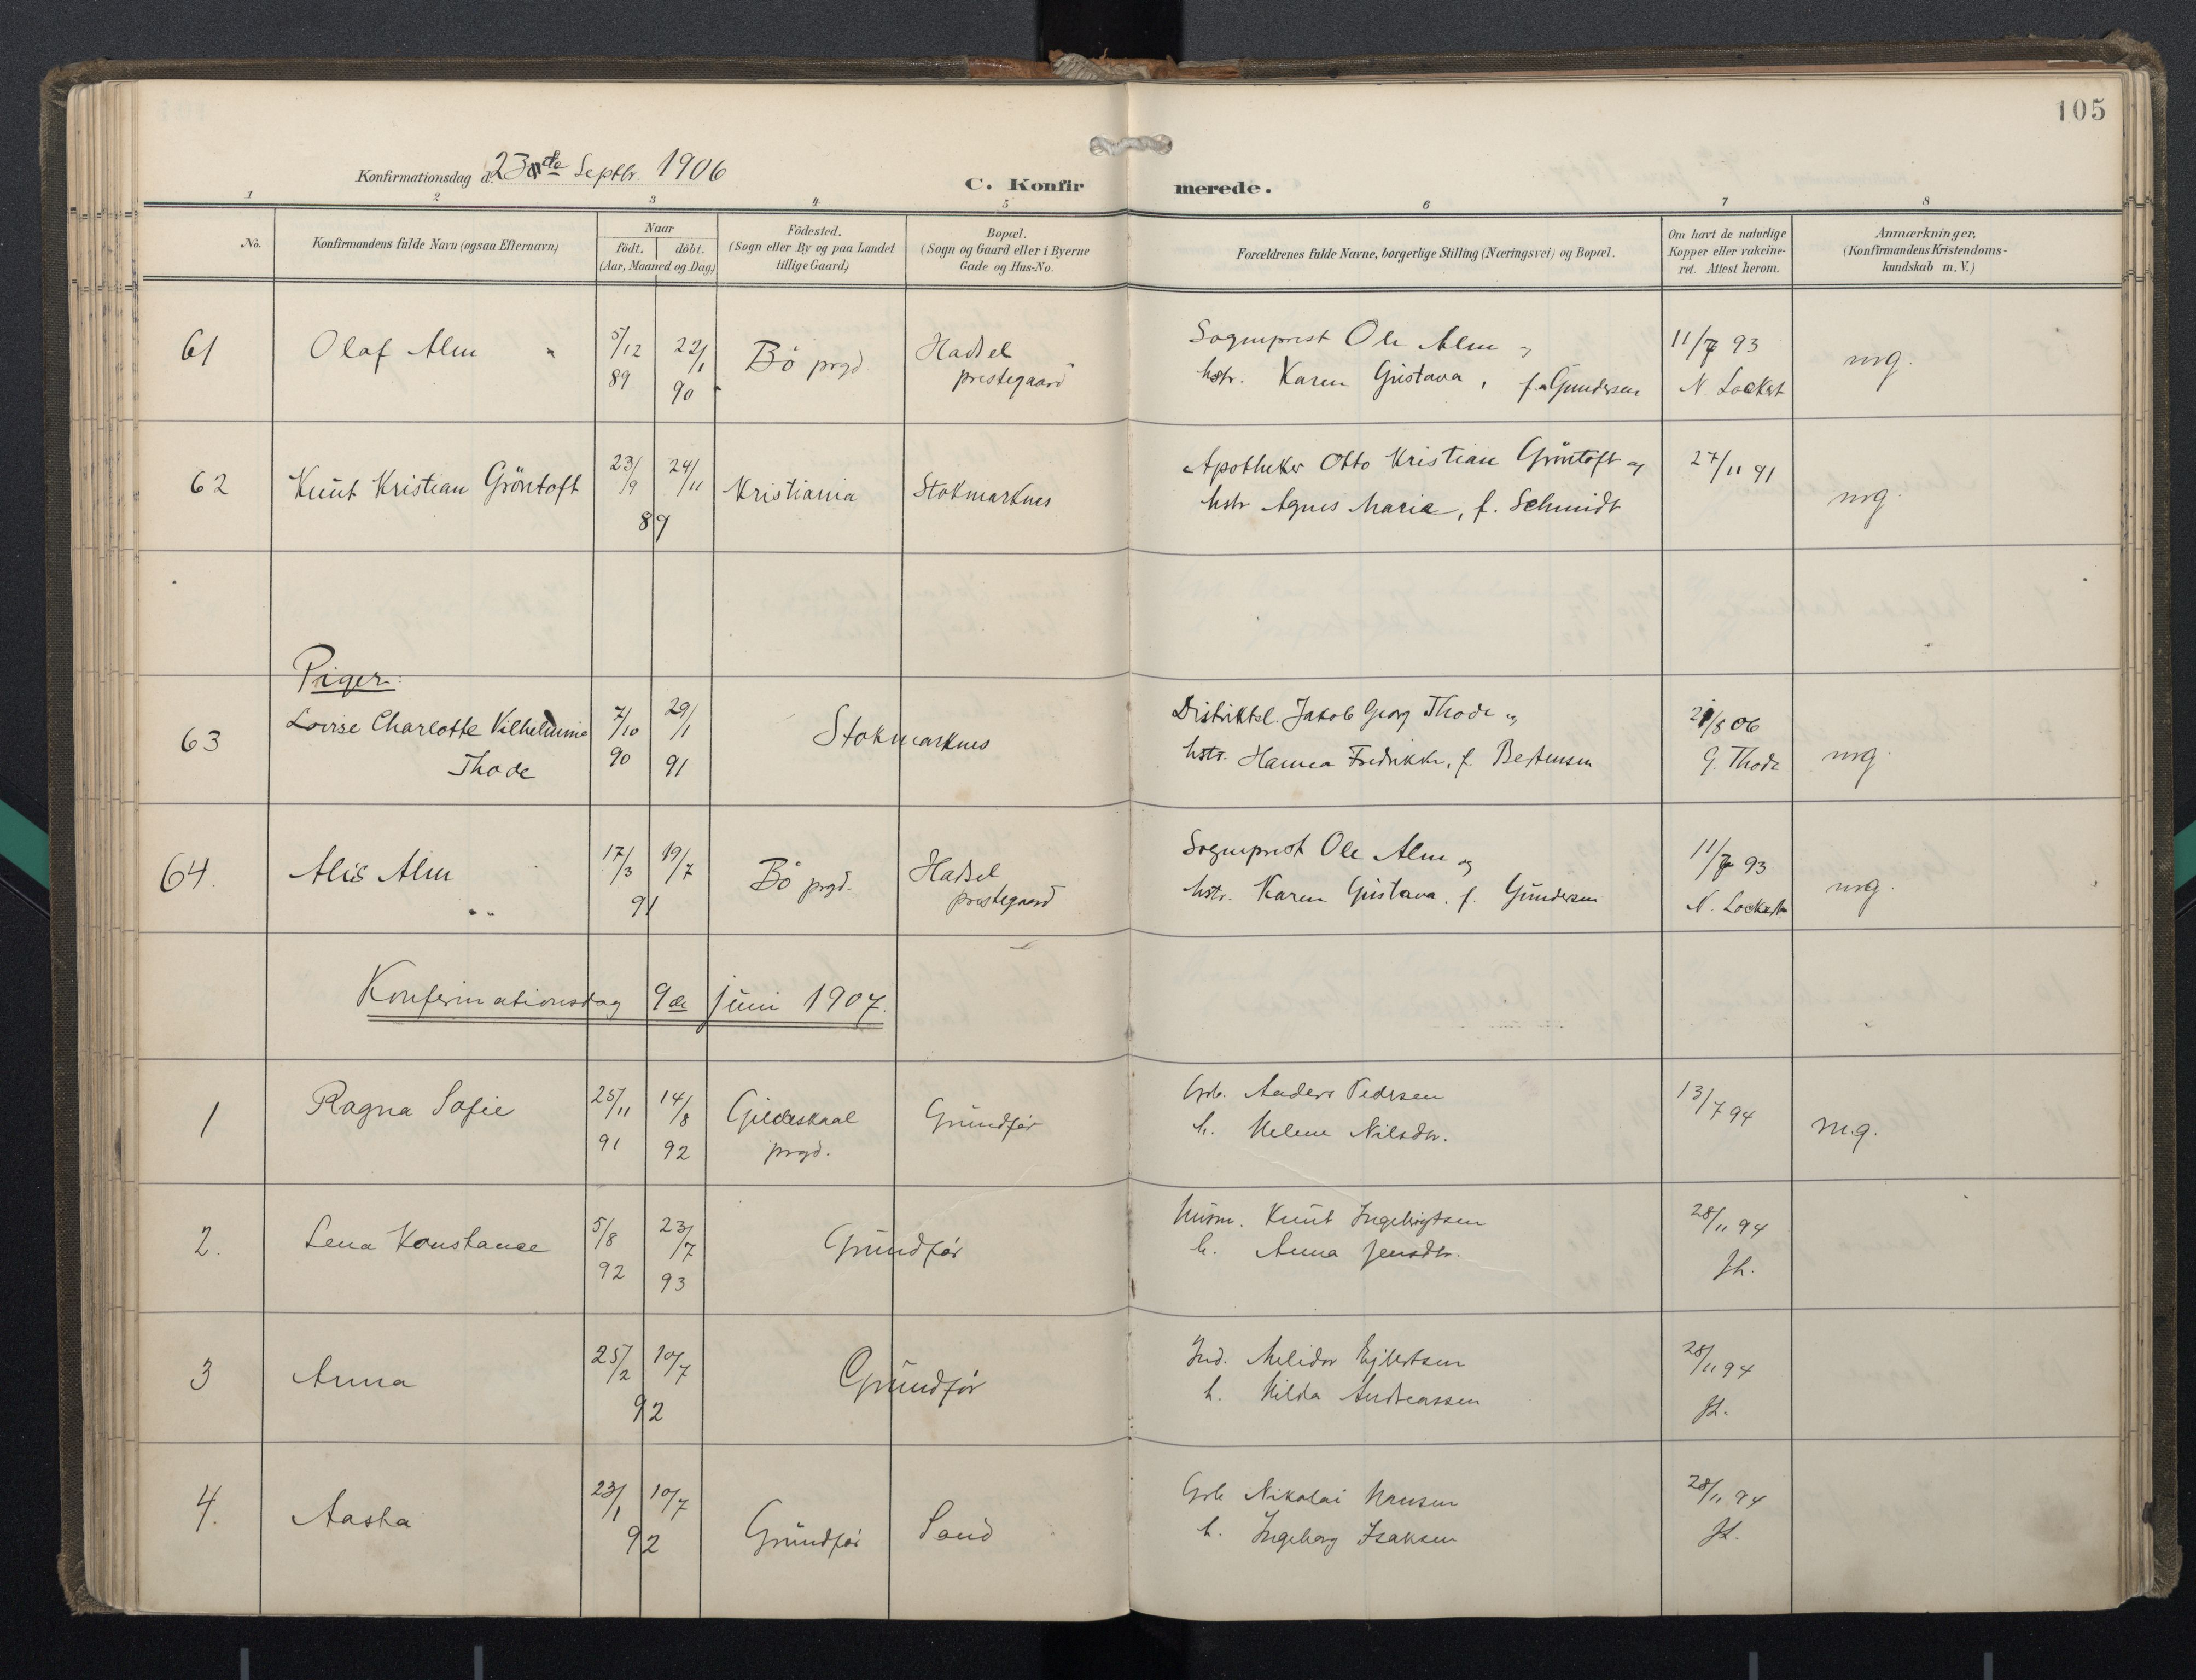 105
Konfirmationsdag d. 23de Septbr. 1906
C. Konfirmerede.
1 2 3 4 5 6 7 8
No.
Konfirmandens fulde Navn (ogsaa Efternavn)
Naar
födt. döbt.
(Aar, Maaned og Dag)
Födested.
(Sogn eller By og paa Landet
tillige Gaard)
Bopæl.
(Sogn og Gaard eller i Byerne
Gade og Hus-No.
Forældrenes fulde Navne, borgerlige Stilling (Næringsvei) og Bopæl.
Om havt de naturlige
Kopper eller vakcine-
ret. Attest herom.
Anmærkninger.
(Konfirmandens Kristendoms-
kundskab m. V.)
61 Olaf Alm 5/12 89 22/1 90 Bö prgd. Hadsel
prestegaard
Sogneprest Ole Alm og
hstr. Karen Gustava, f. Gundersen
11/7 93
N. Lockert
mg.
62 Knut Kristian Gröntoft 23/9 24/11 89 Kristiania Stokmarknes
Apotheker Otto Kristian Gröntoft og
hstr Agnes Marie, f. Schmidt
27/11 91
mg.
Piger:
63 Lovise Charlotte Vilhelmine
Thode
7/10 90 29/1 91 Stokmarknes
Distriktsl. Jakob Georg Thode og
hstr. Hanna Fredrikke, f. Bertensen
21/8 06
G. Thode
mg.
64. Alis Alm 17/3 19/7 91 Bö prgd. Hadsel
prestegaard
Sogneprest Ole Alm og
hstr. Karen Gustava, f. Gundersen
11/7 93
N. Lockert
mg.
Konfermationsdag 9de juni 1907.
1 Ragna Sofie 25/11 91 14/8 92 Gildeskaal
prgd.
Grundför
Grb. Anders Pedersen
h. Helene Nilsdtr.
13/7 94
m.g.
2. Lena Konstance 5/8 92 23/7 93 Grundför
Husm. Knut Ingebrigtsen
h. Anna Jensdtr.
28/11 94
Jh.
3 Anna 25/2 10/7 92 Grundför
Ind. Melidor Ejlertsen
h. Hilda Andreassen
28/11 94
Jh.
4. Aasta 23/1 10/7 92 Grundför Sand
Grb Nikolai Hansen
h. Ingeborg Isaksen
28/11 94
Jh.